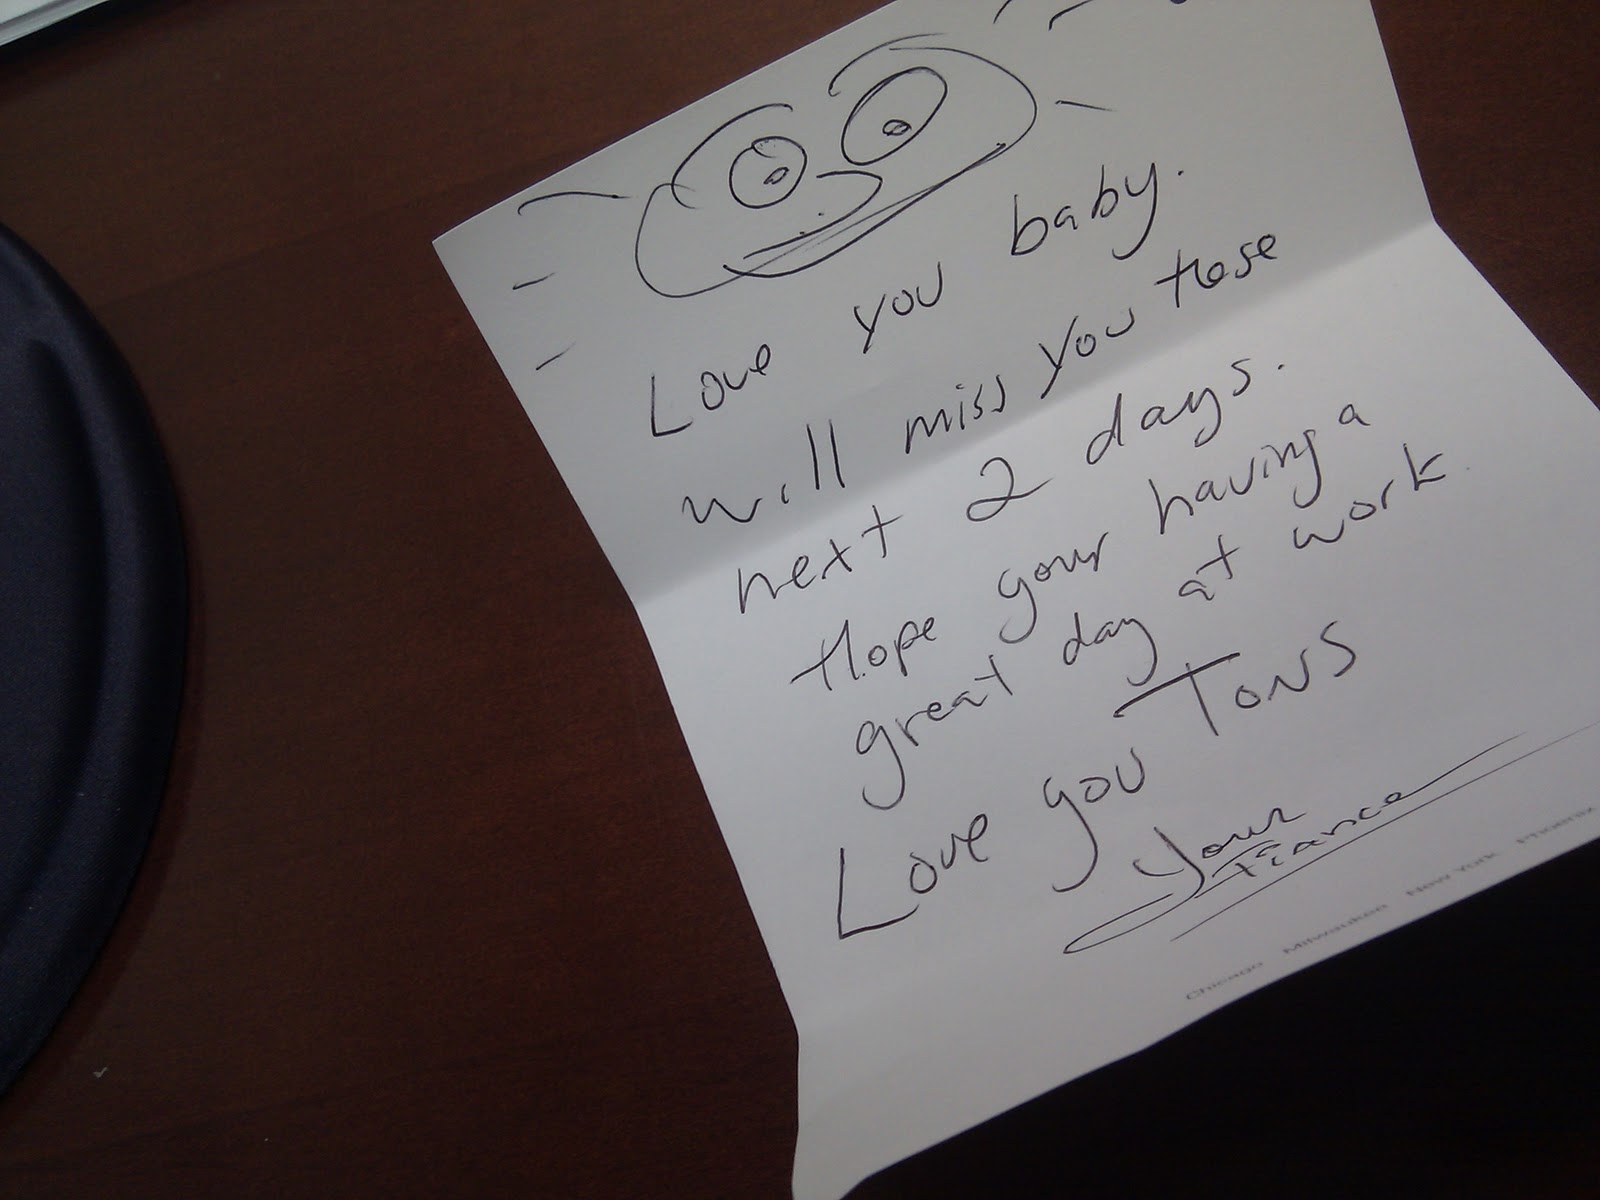 Love you baby.
will miss you these
next 2 days.
Hope your having a
great day at work.
Love you Tons
Your
Fiance
Chicago Milwaukee New York Phoenix